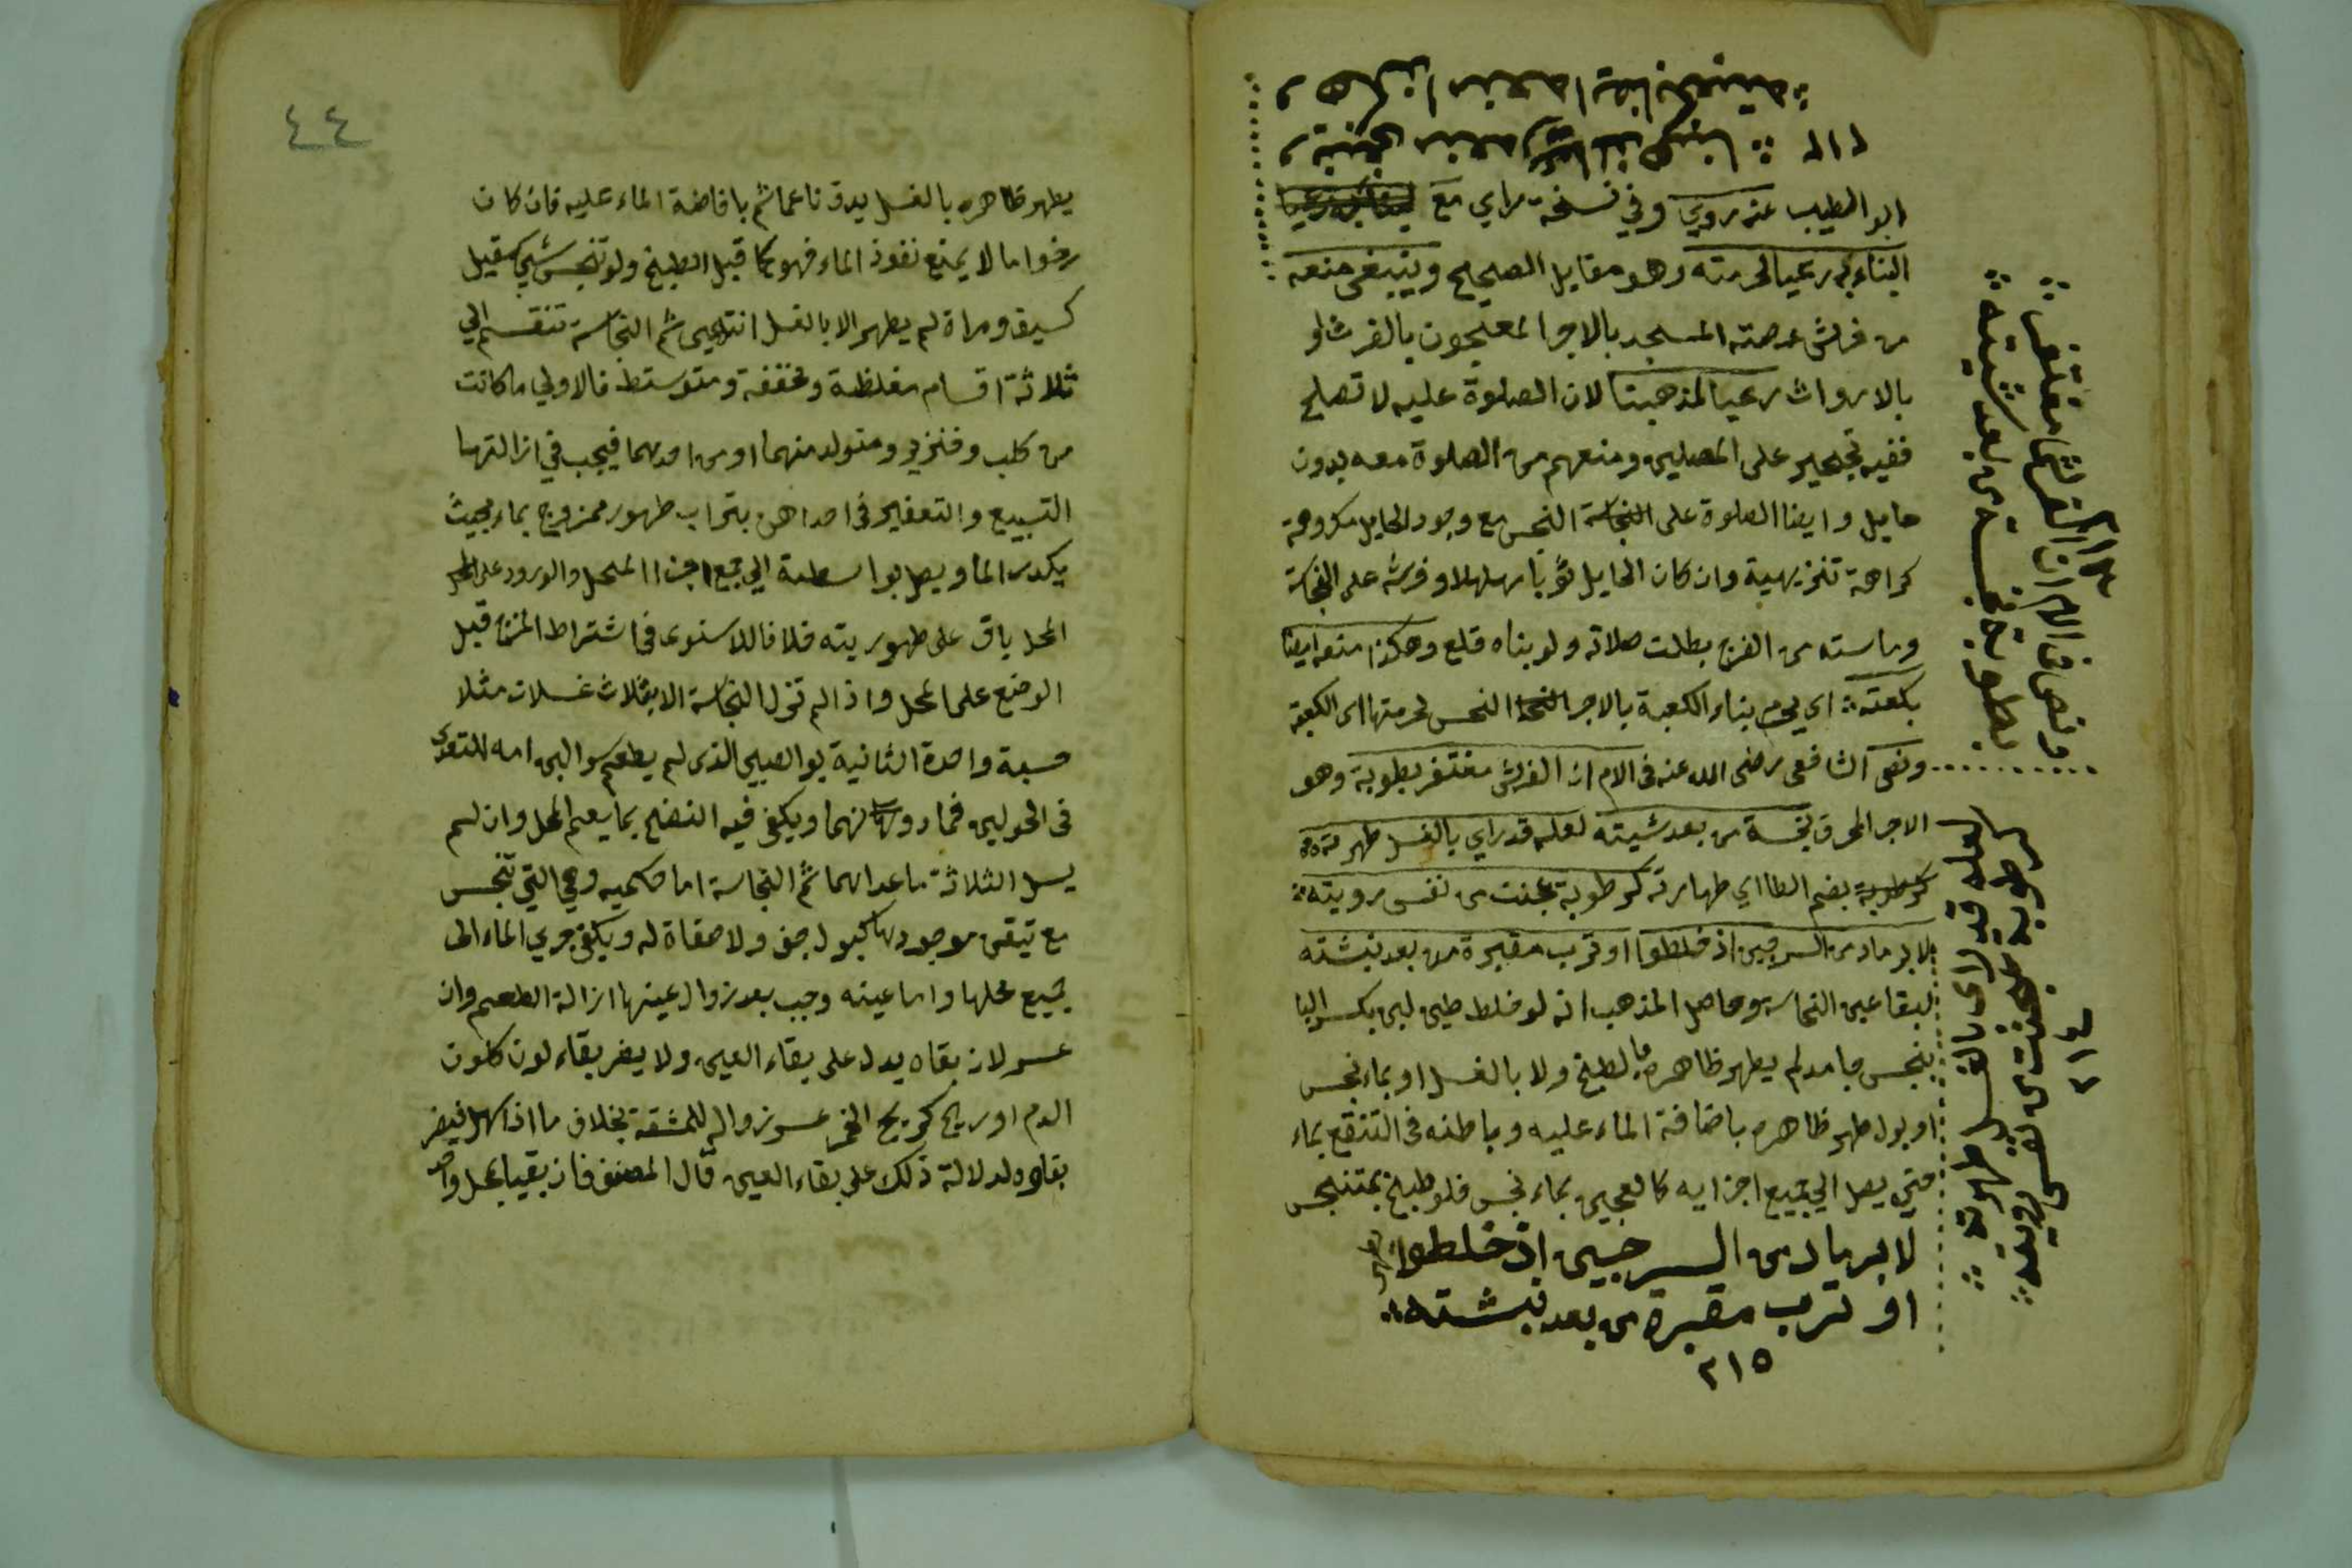 وينبغي منعه رعيا لمذهبنا ؞ ٢١٢
وهكذا منعه ايضا بكعبته ؞
ابو الطيب عنه روي وفي نسخة مراي مع
البناء به رعيا لحرمته وهو مقابل الصحيح وينبغي منعه
من فرش عرصته المسجد بالاجر المعجون بالفرث او
بالارواث رعيا لمذهبنا لان الصلوة عليه لا تصلح
ففيه تحجير على المصلين ومنعهم من الصلوة معه بدون
حايل وايضا الصلوة على النجاسة النجس مع وجود الحايل مكروهة
كراهة تنزيهية وان كان الحايل ثوبا مهلهلا وفرشه على النجاسة
وماسته من الفرج بطلت صلاته ولو بناه قلع وهكذا منعه ايضا
بكعبته ؞ اي يحرم بناء الكعبة بالاجر النجس لحرمتها اي الكعبة
ونص الشافعي رضى الله عنه في الام ان الفرش مغتفر بطوبة وهو
الاجر المحرق نجسة من بعد شيته لعله قد راي بالغسل طهرته
كرطوبة بضم الطا اي طهارته كرطوبة عجنت من نفس رويته ؞
لا برماد من السرجين اذ خلطوا او ترب مقبرة من بعد نبشته
لبقا عين النجاسة وحاصل المذهب انه لو خلط طين لبن بكسر البا
بنجس جامد لم يطهر ظاهره بالطبخ ولا بالغسل او بماء نجس
او بول طهر ظاهره باضافة الماء عليه وباطنه في التنقع بماء
حتى يصل الى جميع اجزايه كالعجين بماء نجس فلو طبخ بمتنجس
لا برماد من السرجين اذ خلطوا
او ترب مقبرة من بعد نبشته ؞
٢١٥
ونص في الام ان الفرش مغتفر ؞
بطوبة نجسة من بعد شيته ؞
٢١٣
لعله قد راى بالغسل طهرته ؞
كرطوبة عجنت من نفس رويته ؞
٢١٤
٤٤
يطهر ظاهره بالغسل يدق ناعما ثم بافاضة الماء عليه فان كان
رخوا ما لا يمنع نفوذ الماء فهو كما قبل الطبخ ولو تنجس شي كصقيل
كسيف ومراة لم يطهر الا بالغسل انتهى ثم النجاسة تنقسم الي
ثلاثة اقسام مغلظة ومخففة ومتوسطة فالاولي ما كانت
من كلب وخنزير ومتولد منهما او من احدهما فيجب في ازالتها
التسبيع والتعفير في احداهن بتراب طهور ممزوج بماء بحيث
يكدر الما ويصل بواسطة الي جميع اجزاا المحل والورود على المحل
المحل باق على طهوريته خلافا للاسنوى في اشتراط المزج قبل
الوضع على المحل واذا لم تزل النجاسة الا بثلاث غسلات مثلا
حسبة واحدة الثانية بول الصبي الذى لم يطعم سوا لبن امه للتغذي
في الحولين فما دونهما ويكفي فيه النضح بما يعم المحل وان لم
يسل الثلاثة ما عداهما ثم النجاسة اما حكميه وهي التي تنجس
مع تيقن موجودها كبول جف ولا صفاة له ويكفي جري الماء الى
جميع محلها واما عينه وجب بعد زوال عينها ازالة الطعم وان
عسر لان بقاه يدل على بقاء العين ولا يضر بقاء لون كلون
الدم او ريح كريح الخمر عسر زواله للمشقة بخلاف ما اذا سهل فيضر
بقاوه لدلالة ذلك على بقاء العين قال المصنف فان بقيا بمحل واحد